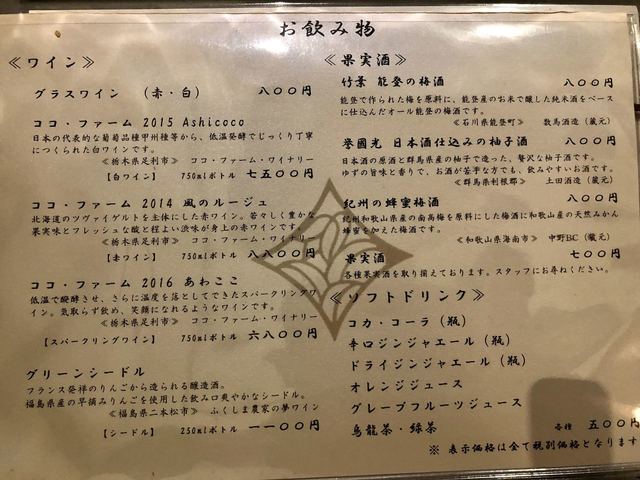 お飲み物
≪ワイン≫
グラスワイン (赤・白) 八〇〇円
ココ・ファーム 2015 Ashicoco
日本の代表的な葡萄品種甲州種等から、低温発酵でじっくり丁寧
につくられた白ワインです。
≪栃木県足利市≫ ココ・ファーム・ワイナリー
【白ワイン】 750mlボトル 七五〇〇円
ココ・ファーム 2014 風のルージュ
北海道のツヴァイゲルトを主体にした赤ワイン。若々しく豊かな
果実味とフレッシュな酸と程よい渋味が身上の赤ワインです。
≪栃木県足利市≫ ココ・ファーム・ワイナリー
【赤ワイン】 750mlボトル 八八〇〇円
ココ・ファーム 2016 あわここ
低温で醗酵させ、さらに温度を落としてできたスパークリングワ
イン。気取らず飲め、笑顔になれるようなワインです。
≪栃木県足利市≫ ココ・ファーム・ワイナリー
【スパークリングワイン】 750mlボトル 六八〇〇円
グリーンシードル
フランス発祥のりんごから造られる醸造酒。
福島県産の早摘みりんごを使用した飲み口爽やかなシードル。
≪福島県二本松市≫ ふくしま農家の夢ワイン
【シードル】 250mlボトル 一一〇〇円
≪果実酒≫
竹葉 能登の梅酒 八〇〇円
能登で作られた梅を原料に、能登産のお米で醸した純米酒をベース
に仕込んだオール能登の梅酒です。
≪石川県能登町≫ 数馬酒造(蔵元)
誉國光 日本酒仕込みの柚子酒 八〇〇円
日本酒の原酒と群馬県産の柚子で造った、贅沢な柚子酒です。
ゆずの旨味と香りで、お酒が苦手な方でも、飲みやすいお酒です。
≪群馬県利根郡≫ 土田酒造(蔵元)
紀州の蜂蜜梅酒 八〇〇円
紀州和歌山県産の南高梅を原料にした梅酒に和歌山産の天然みかん
蜂蜜を加えた梅酒です。
≪和歌山県海南市≫ 中野BC(蔵元)
果実酒 七〇〇円
各種果実酒を取り揃えております。スタッフにお尋ねください。
≪ソフトドリンク≫
コカ・コーラ(瓶)
辛口ジンジャエール(瓶)
ドライジンジャエール(瓶)
オレンジジュース
グレープフルーツジュース
烏龍茶・緑茶 各種 五〇〇円
※ 表示価格は全て税別価格となります